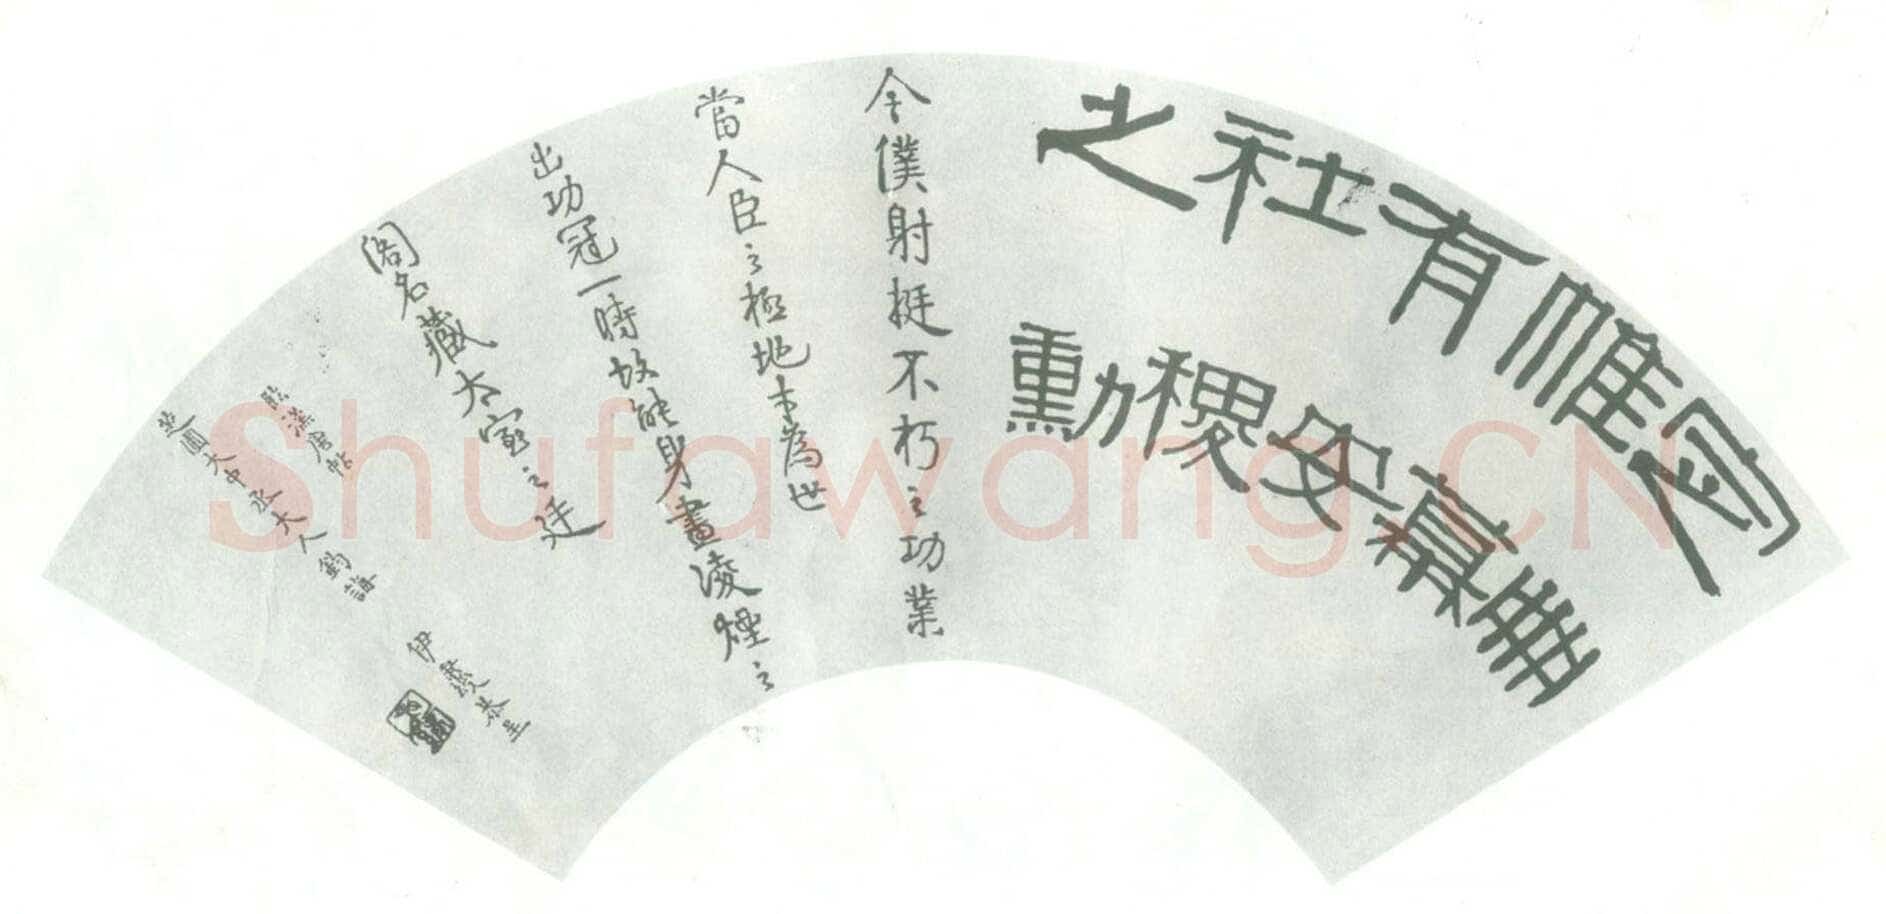 垂
帷幕
有安
社稷
之勳
今僕射挺不朽之功業
當人臣之極地才為世
出功冠一時故能身畫凌煙之
閣名藏太室之廷
臨漢唐帖
圃大中丞大人鈞誨
伊秉綬恭呈
Shufawang.CN